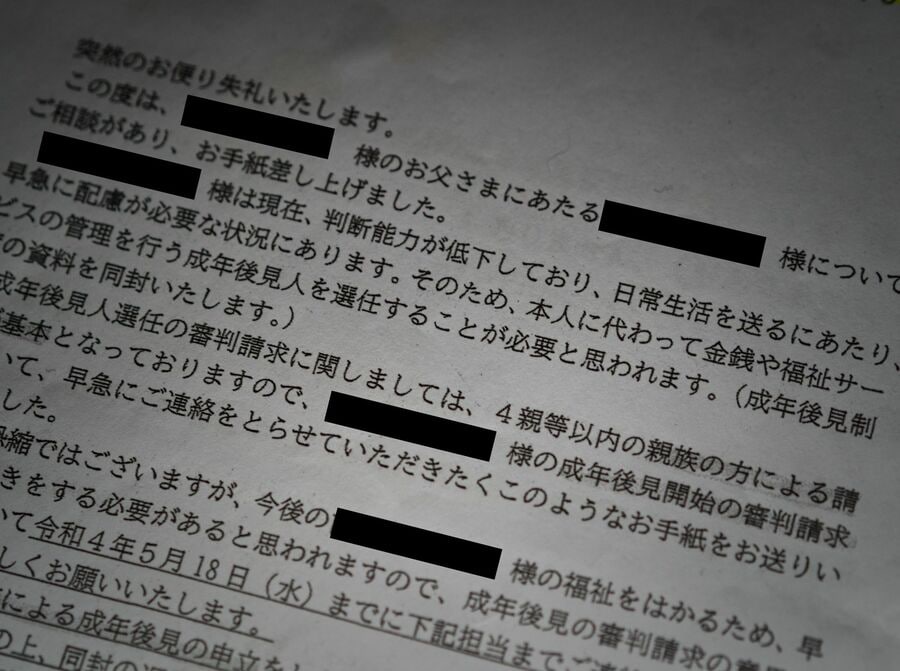 突然のお便り失礼いたします。
この度は、 様のお父さまにあたる 様について
ご相談があり、お手紙差し上げました。
様は現在、判断能力が低下しており、日常生活を送るにあたり、
早急に配慮が必要な状況にあります。そのため、本人に代わって金銭や福祉サー
ビスの管理を行う成年後見人を選任することが必要と思われます。（成年後見制
の資料を同封いたします。）
成年後見人選任の審判請求に関しましては、４親等以内の親族の方による請
基本となっておりますので、 様の成年後見開始の審判請求
いて、早急にご連絡をとらせていただきたくこのようなお手紙をお送りい
した。
縮ではございますが、今後の 様の福祉をはかるため、早
きをする必要があると思われますので、成年後見の審判請求の意
いて令和４年５月18日（水）までに下記担当までご連
しくお願いいたします。
による成年後見の申立を
の上、同封の